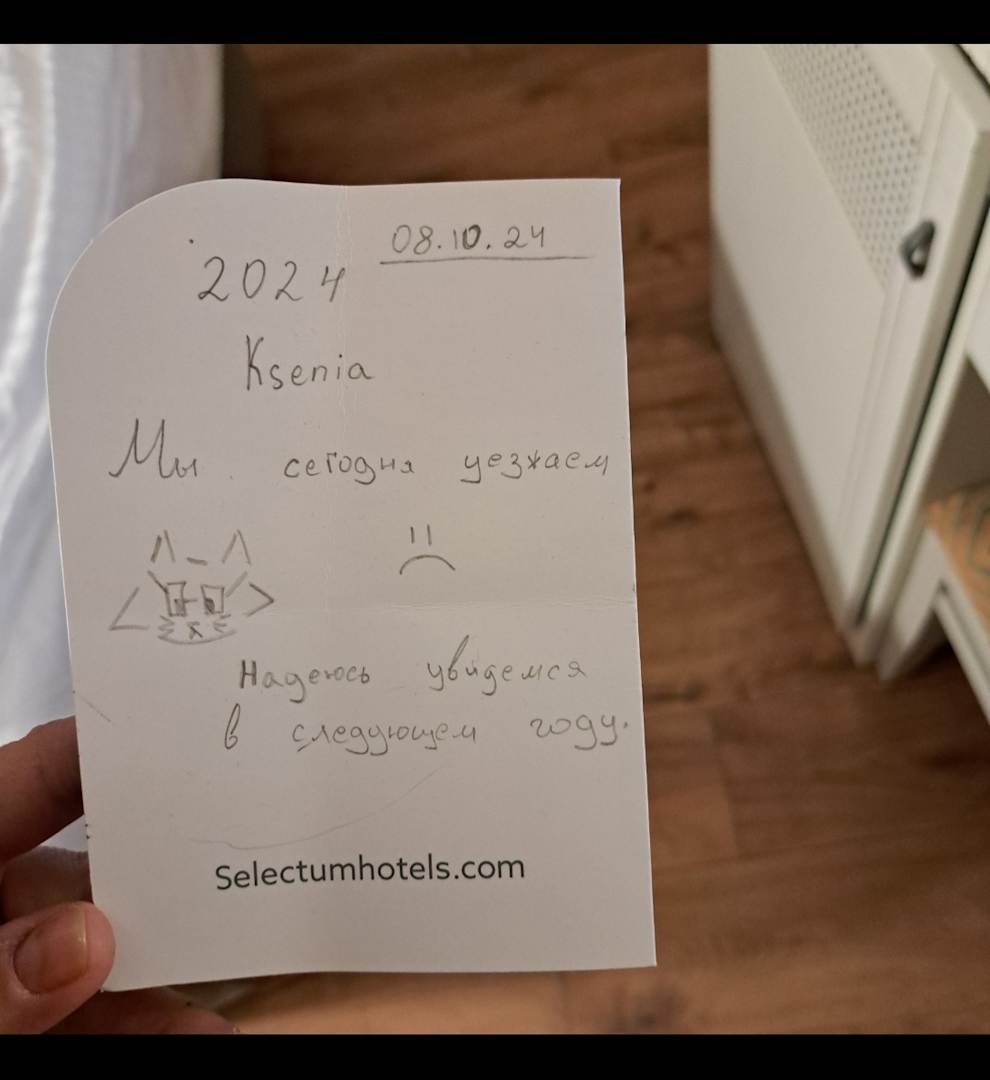 08.10.24
2024
Ksenia
Мы сегодня уезжаем
Надеюсь увидемся
в следующем году.
Selectumhotels.com